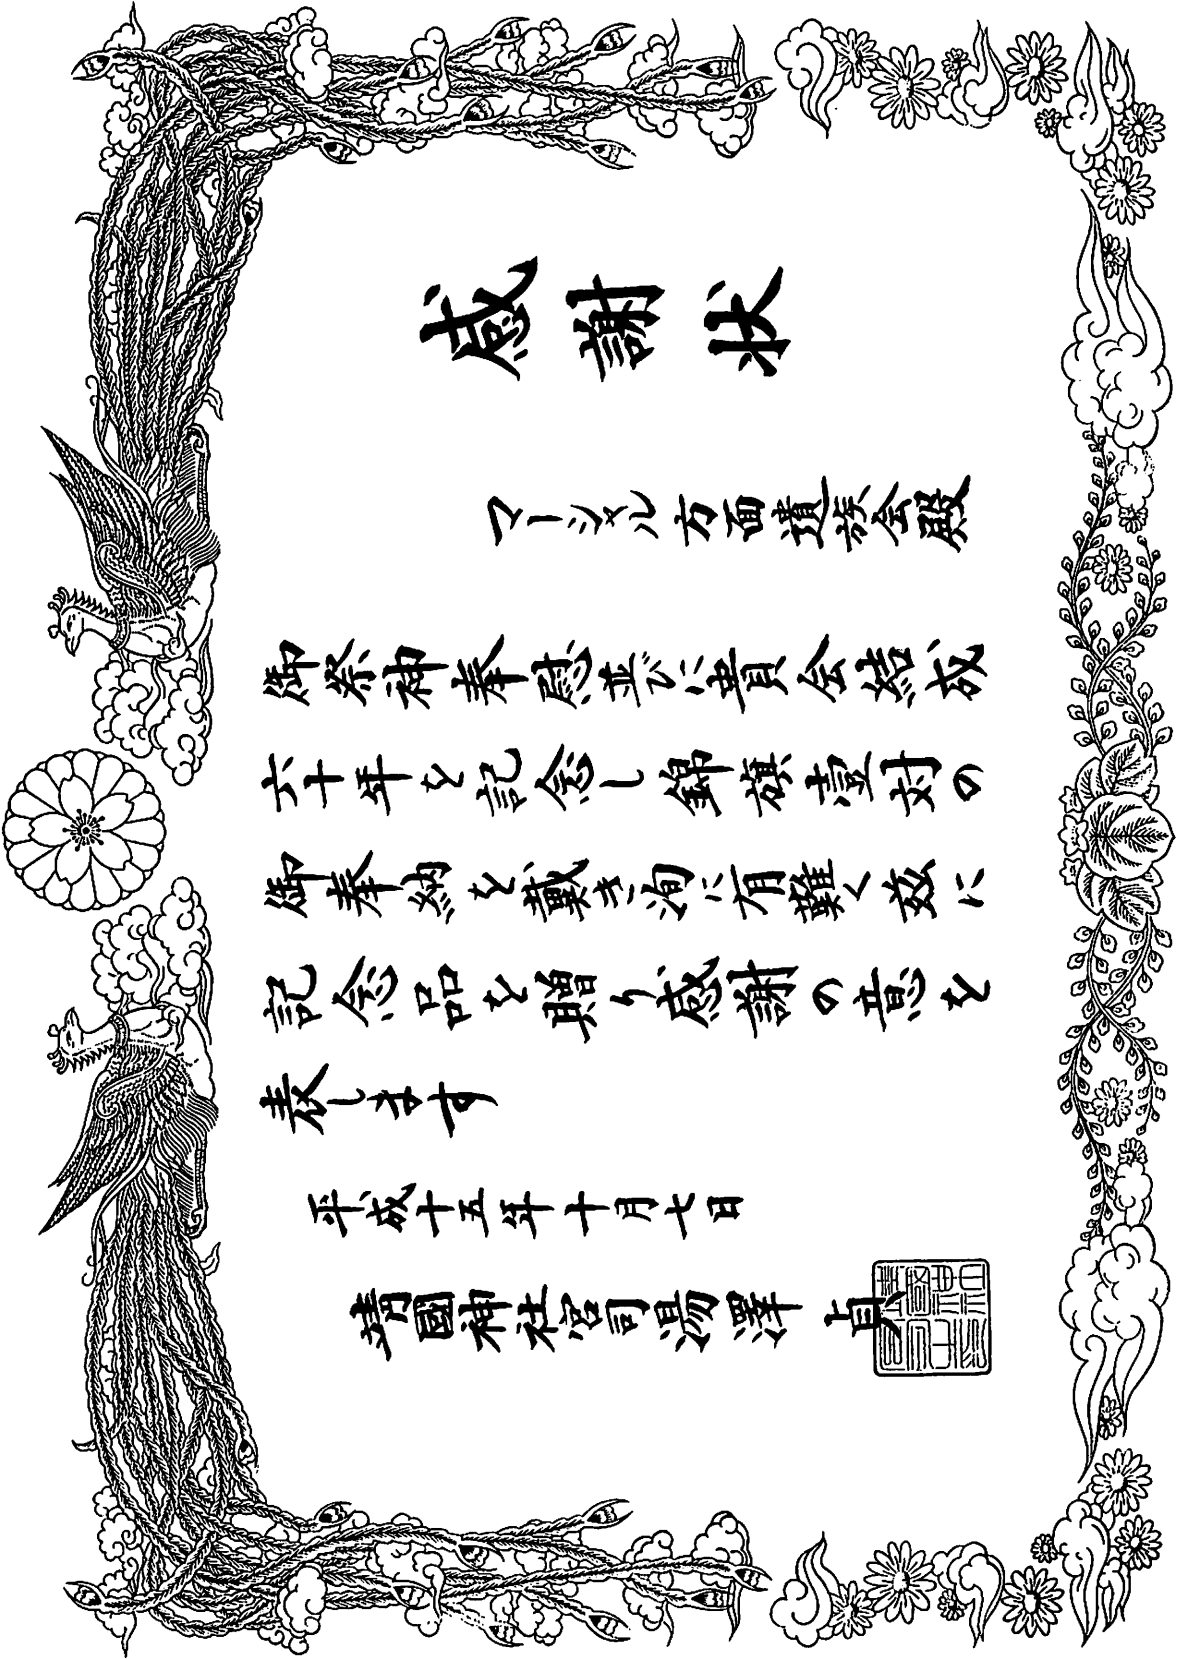 感謝状
マーシャル方面遺族会殿
御祭神奉慰並びに貴会結成
六十年を記念し錦旗壹対の
御奉納を戴き洵に有難く茲に
記念品を贈り感謝の意を
表します
平成十五年十月七日
靖國神社宮司湯澤貞